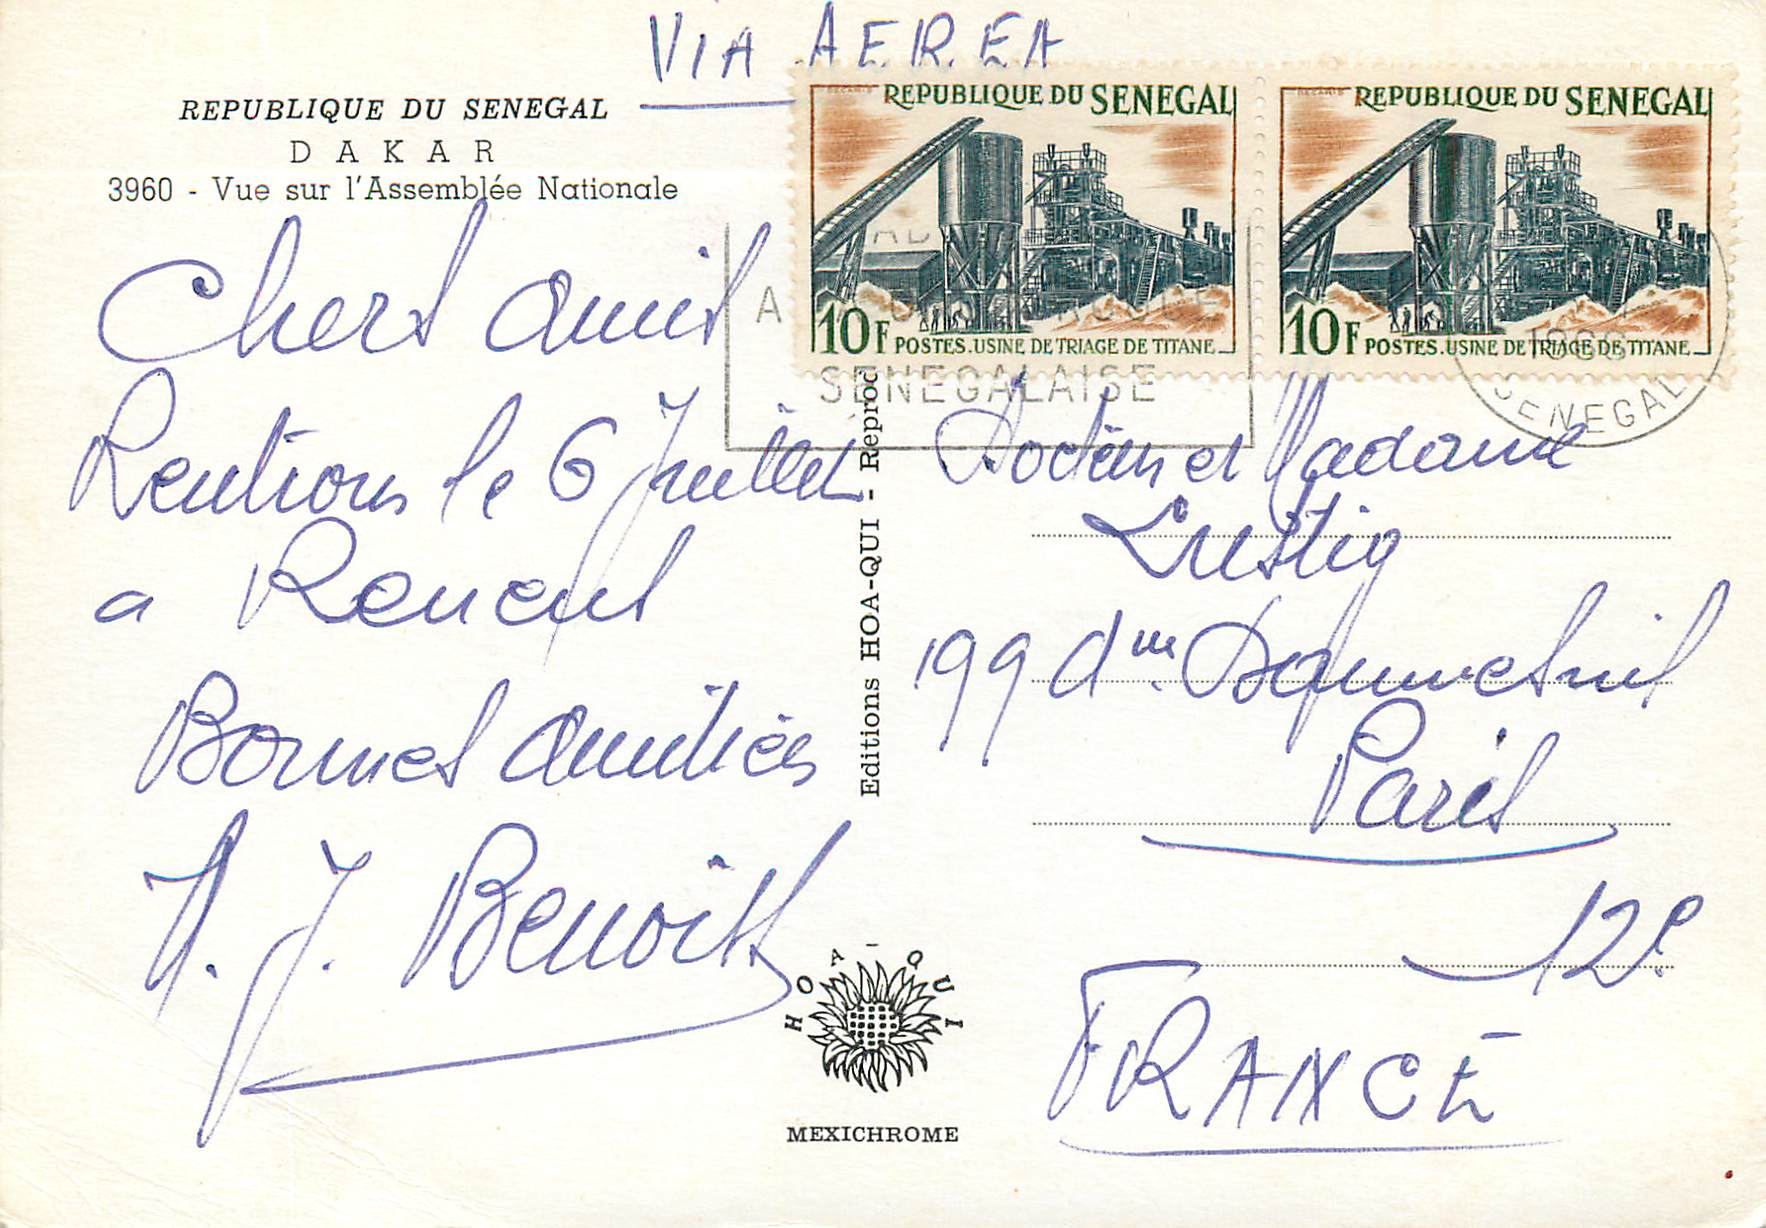 VIA AEREA
REPUBLIQUE DU SENEGAL
DAKAR
3960 - Vue sur l'Assemblée Nationale
Chers amis
Rentrons le 6 Juillet
a
Bonnes amitiés
J. Benoits
REPUBLIQUE DU SENEGAL
10F POSTES. USINE DE TRIAGE DE TITANE
REPUBLIQUE DU SENEGAL
10F POSTES. USINE DE TRIAGE DE TITANE
SENEGALAISE
SENEGAL
Editions HOA-QUI - Reprod
Docteur et Madame
Lustig
199 Daumesnil
Paris
12e
FRANCE
HOA-QUI
MEXICHROME